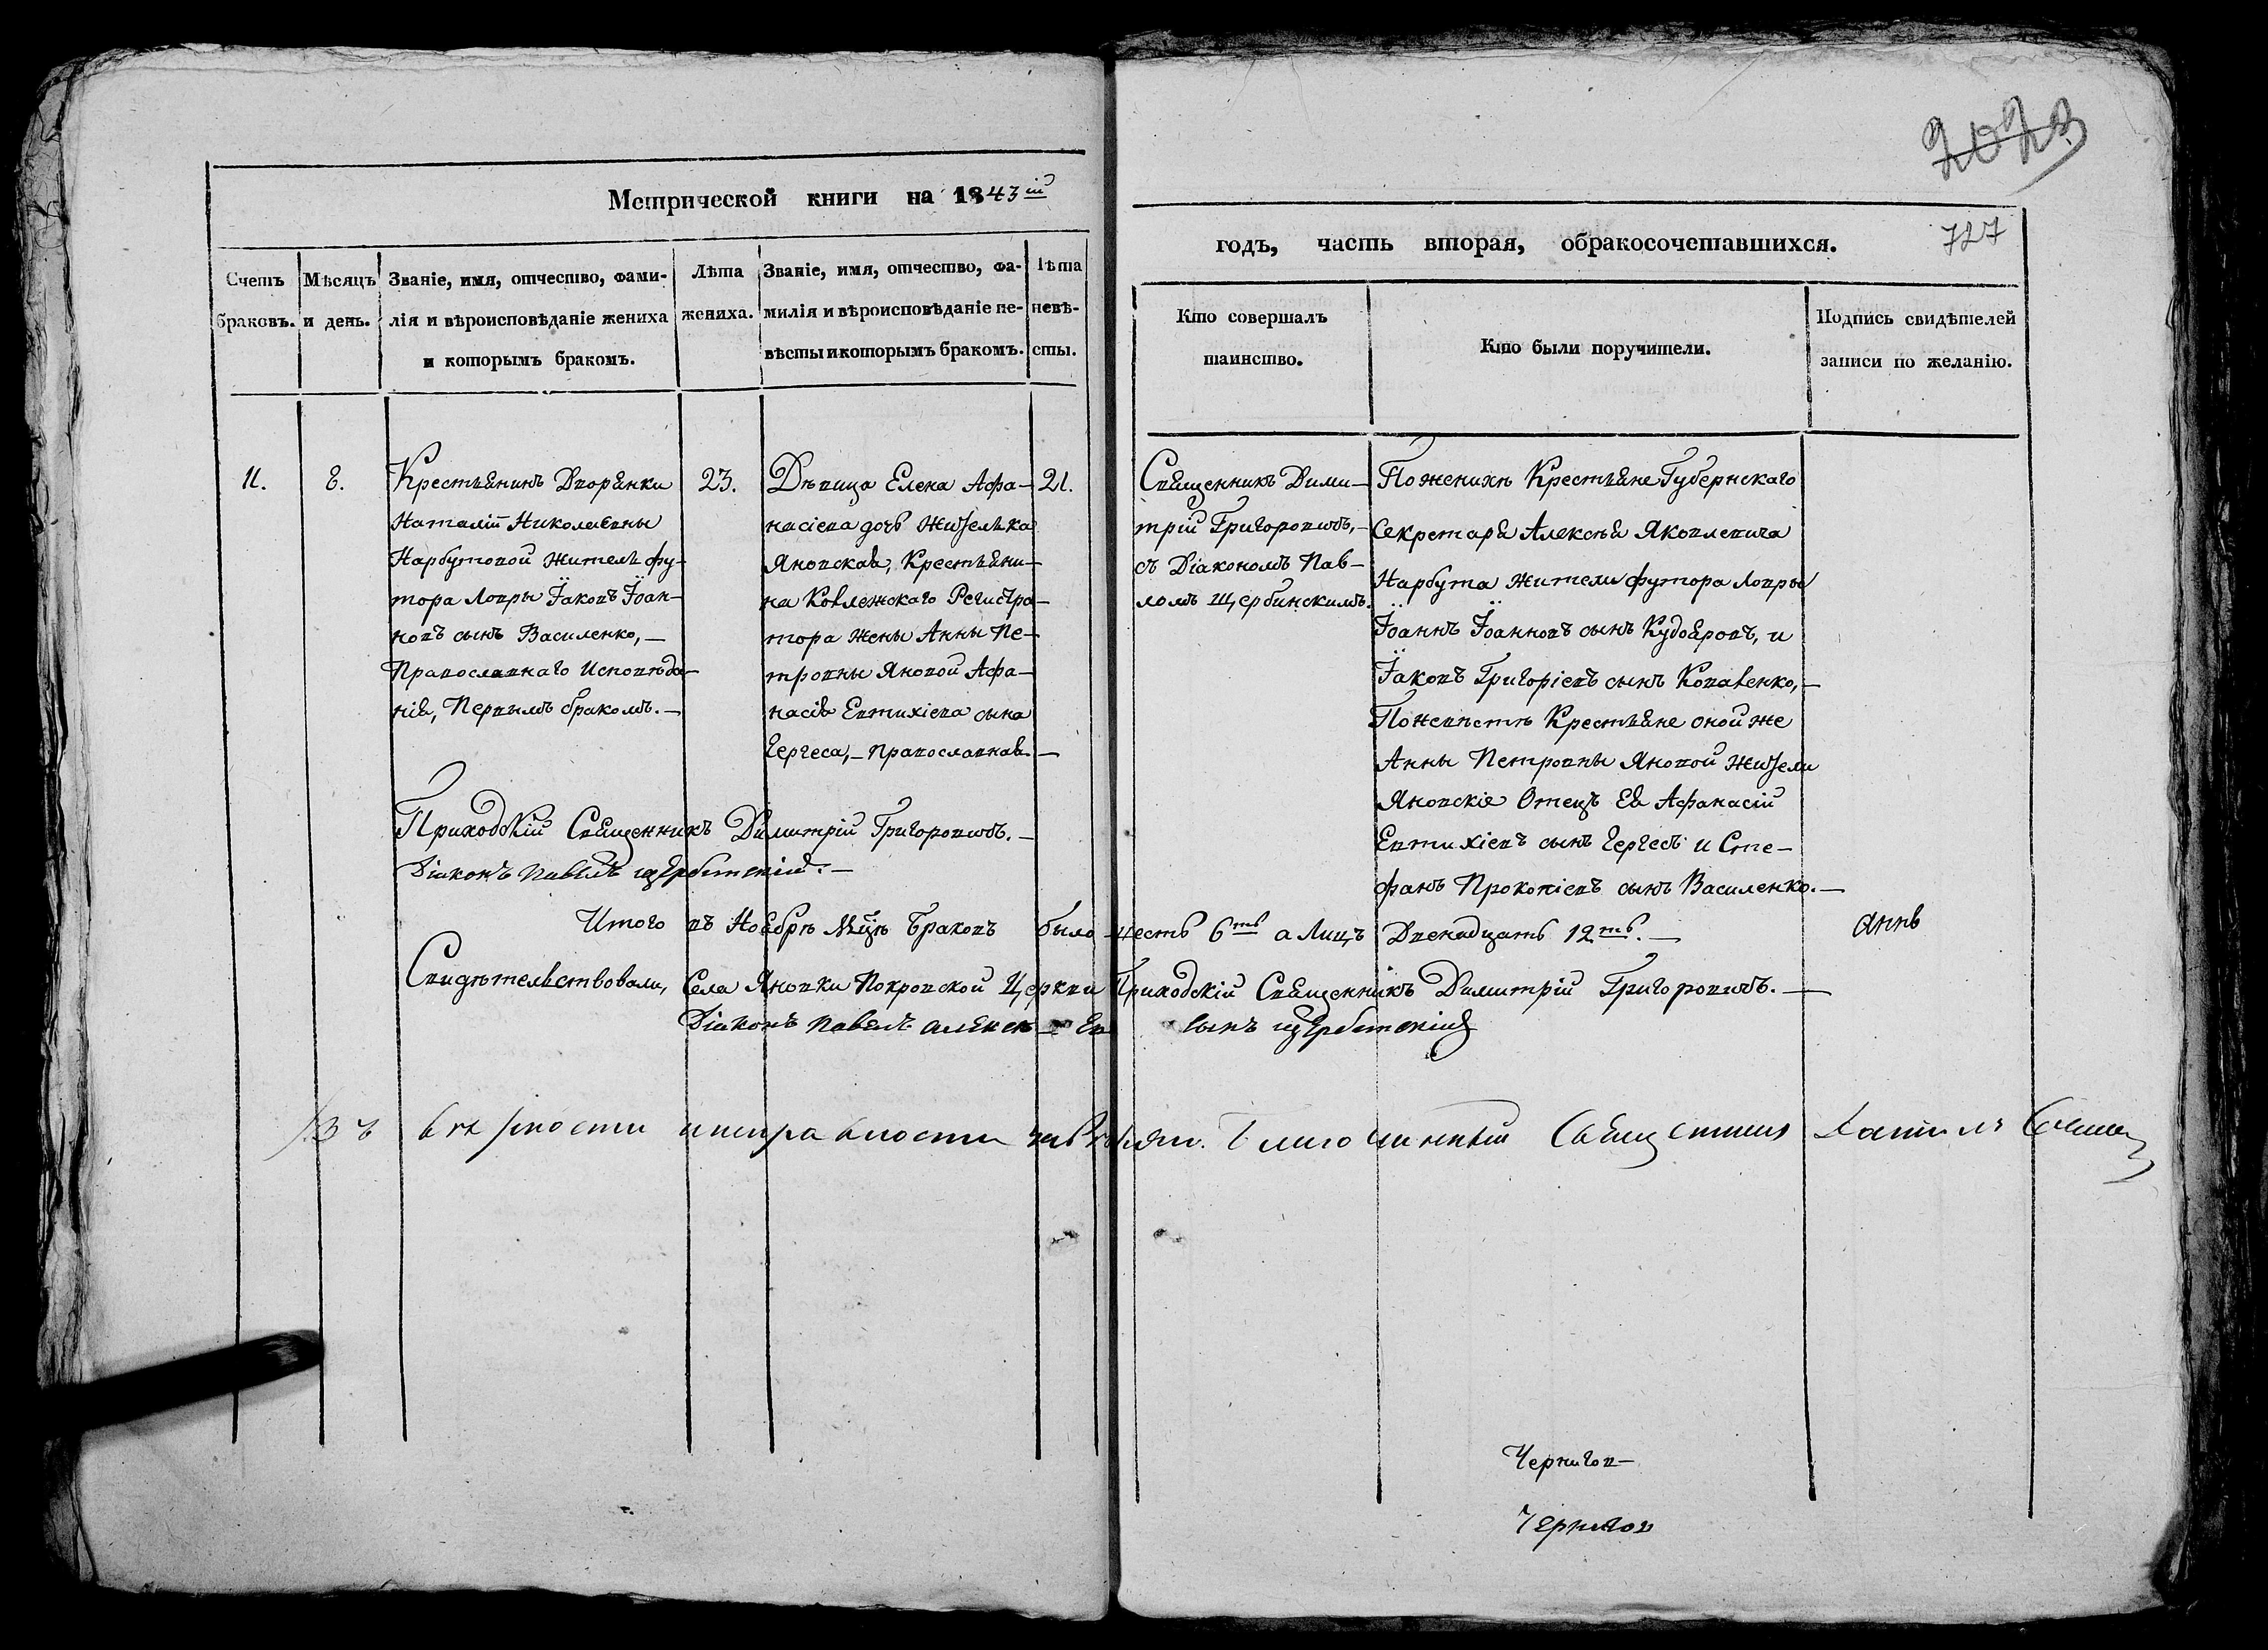 2023
Метрической книги на 1843ій
годъ, часть вторая, обракосочетавшихся.
727
Счетъ
браковъ.
Мѣсяцъ
и день.
Званіе, имя, отчество, фами-
лія и вѣроисповѣданіе жениха
и которымъ бракомъ.
Лѣта
жениха.
Званіе, имя, отчество, фа-
милія и вѣроисповѣданіе не-
вѣсты и которымъ бракомъ.
Лѣта
невѣ-
сты.
Кто совершалъ
таинство.
Кто были поручители.
Подпись свидѣтелей
записи по желанію.
11.
8.
Крестьянинъ Дворянки
Наталіи Николаевны
Нарбутовой житель фу-
тора Ловры Іаковъ Іоан-
новъ сынъ Василенко,—
Православнаго Исповѣда-
нія, Первымъ бракомъ.—
23.
Дѣвица Елена Афа-
насіева дочь жителька
Яновская, Крестьяни-
на Коллежскаго Регистра-
тора жены Анны Пе-
тровны Яновой Афа-
насія Евтихіева сына
Гергеса,— православная.—
21.
Священникъ Дими-
трій Григоровичъ,—
съ Діакономъ Пав-
ломъ Щербинскимъ.
По женихѣ Крестьяне Губернскаго
Секретаря Алексѣя Яковлевича
Нарбута жители футора Ловры
Іоаннъ Іоанновъ сынъ Кудояровъ, и
Іаковъ Григоріевъ сынъ Коваленко,—
По невѣстѣ Крестьяне оной же
Анны Петровны Яновой жители
Яновскіе Отецъ Ея Афанасій
Евтихіевъ сынъ Гергесъ и Сте-
фанъ Прокопіевъ сынъ Василенко.—
Приходскій Священникъ Димитрій Григоровичъ.—
Діаконъ Павелъ Щербинскій.—
Итого въ Ноябрѣ Мцѣ Браковъ было шесть 6ть а Лицъ Двенадцать 12ть.—
Свидѣтельствовали, Села Яновки Покровской Церкви Приходскій Священникъ Димитрій Григоровичъ.—
Діаконъ Павелъ Алексѣ— Ев сынъ Щербинскій
Въ вѣрности и исправности Благочинный Священникъ
Чернигов—
Чернигов